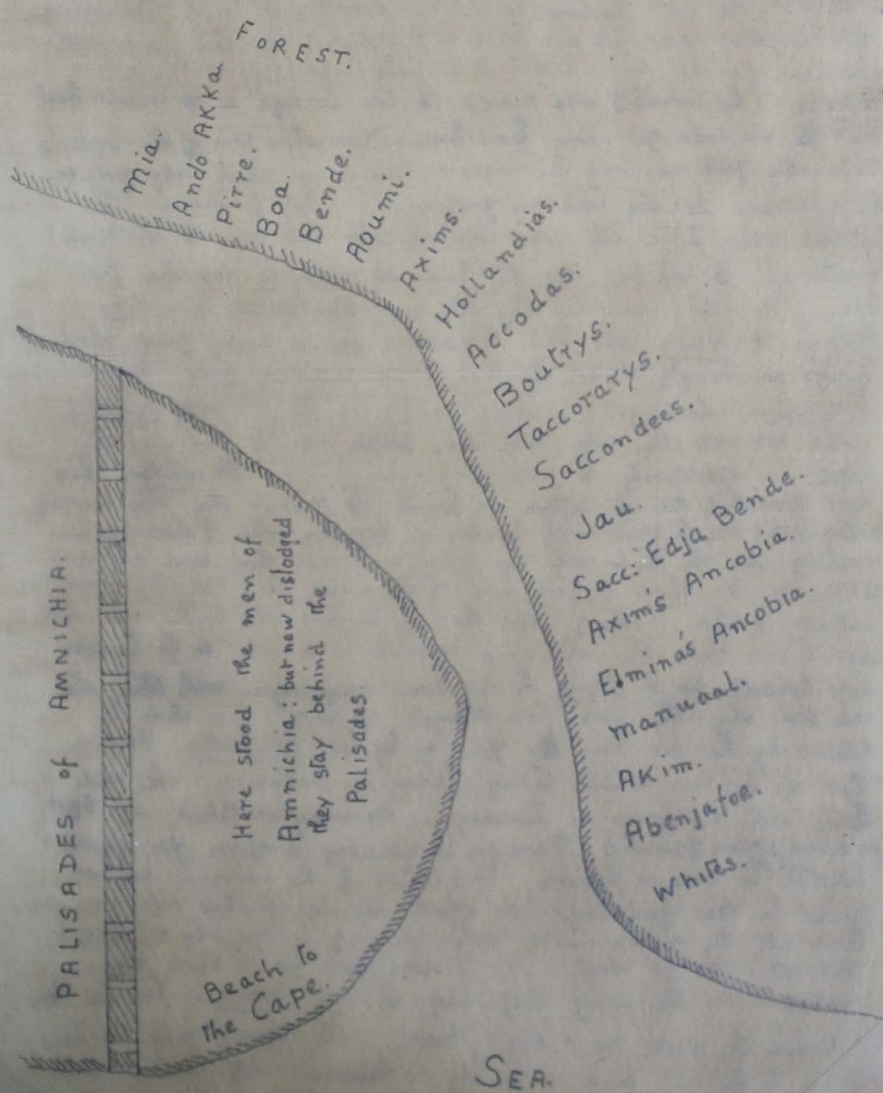 FOREST.
Mia.
Ando AKKa.
Pirre.
Boa.
Bende.
Aoumi.
Axims.
Hollandias.
Accodas.
Boutrys.
Taccorarys.
Saccondees.
Jau.
Sacc: Edja Bende.
Axim's Ancobia.
Elmina's Ancobia.
Manuaal.
AKim.
Abenjafoe.
Whites.
PALISADES of AMNICHIA.
Here stood the men of
Amnichia: but now dislodged
they stay behind the
Palisades.
Beach to
the Cape.
SEA.